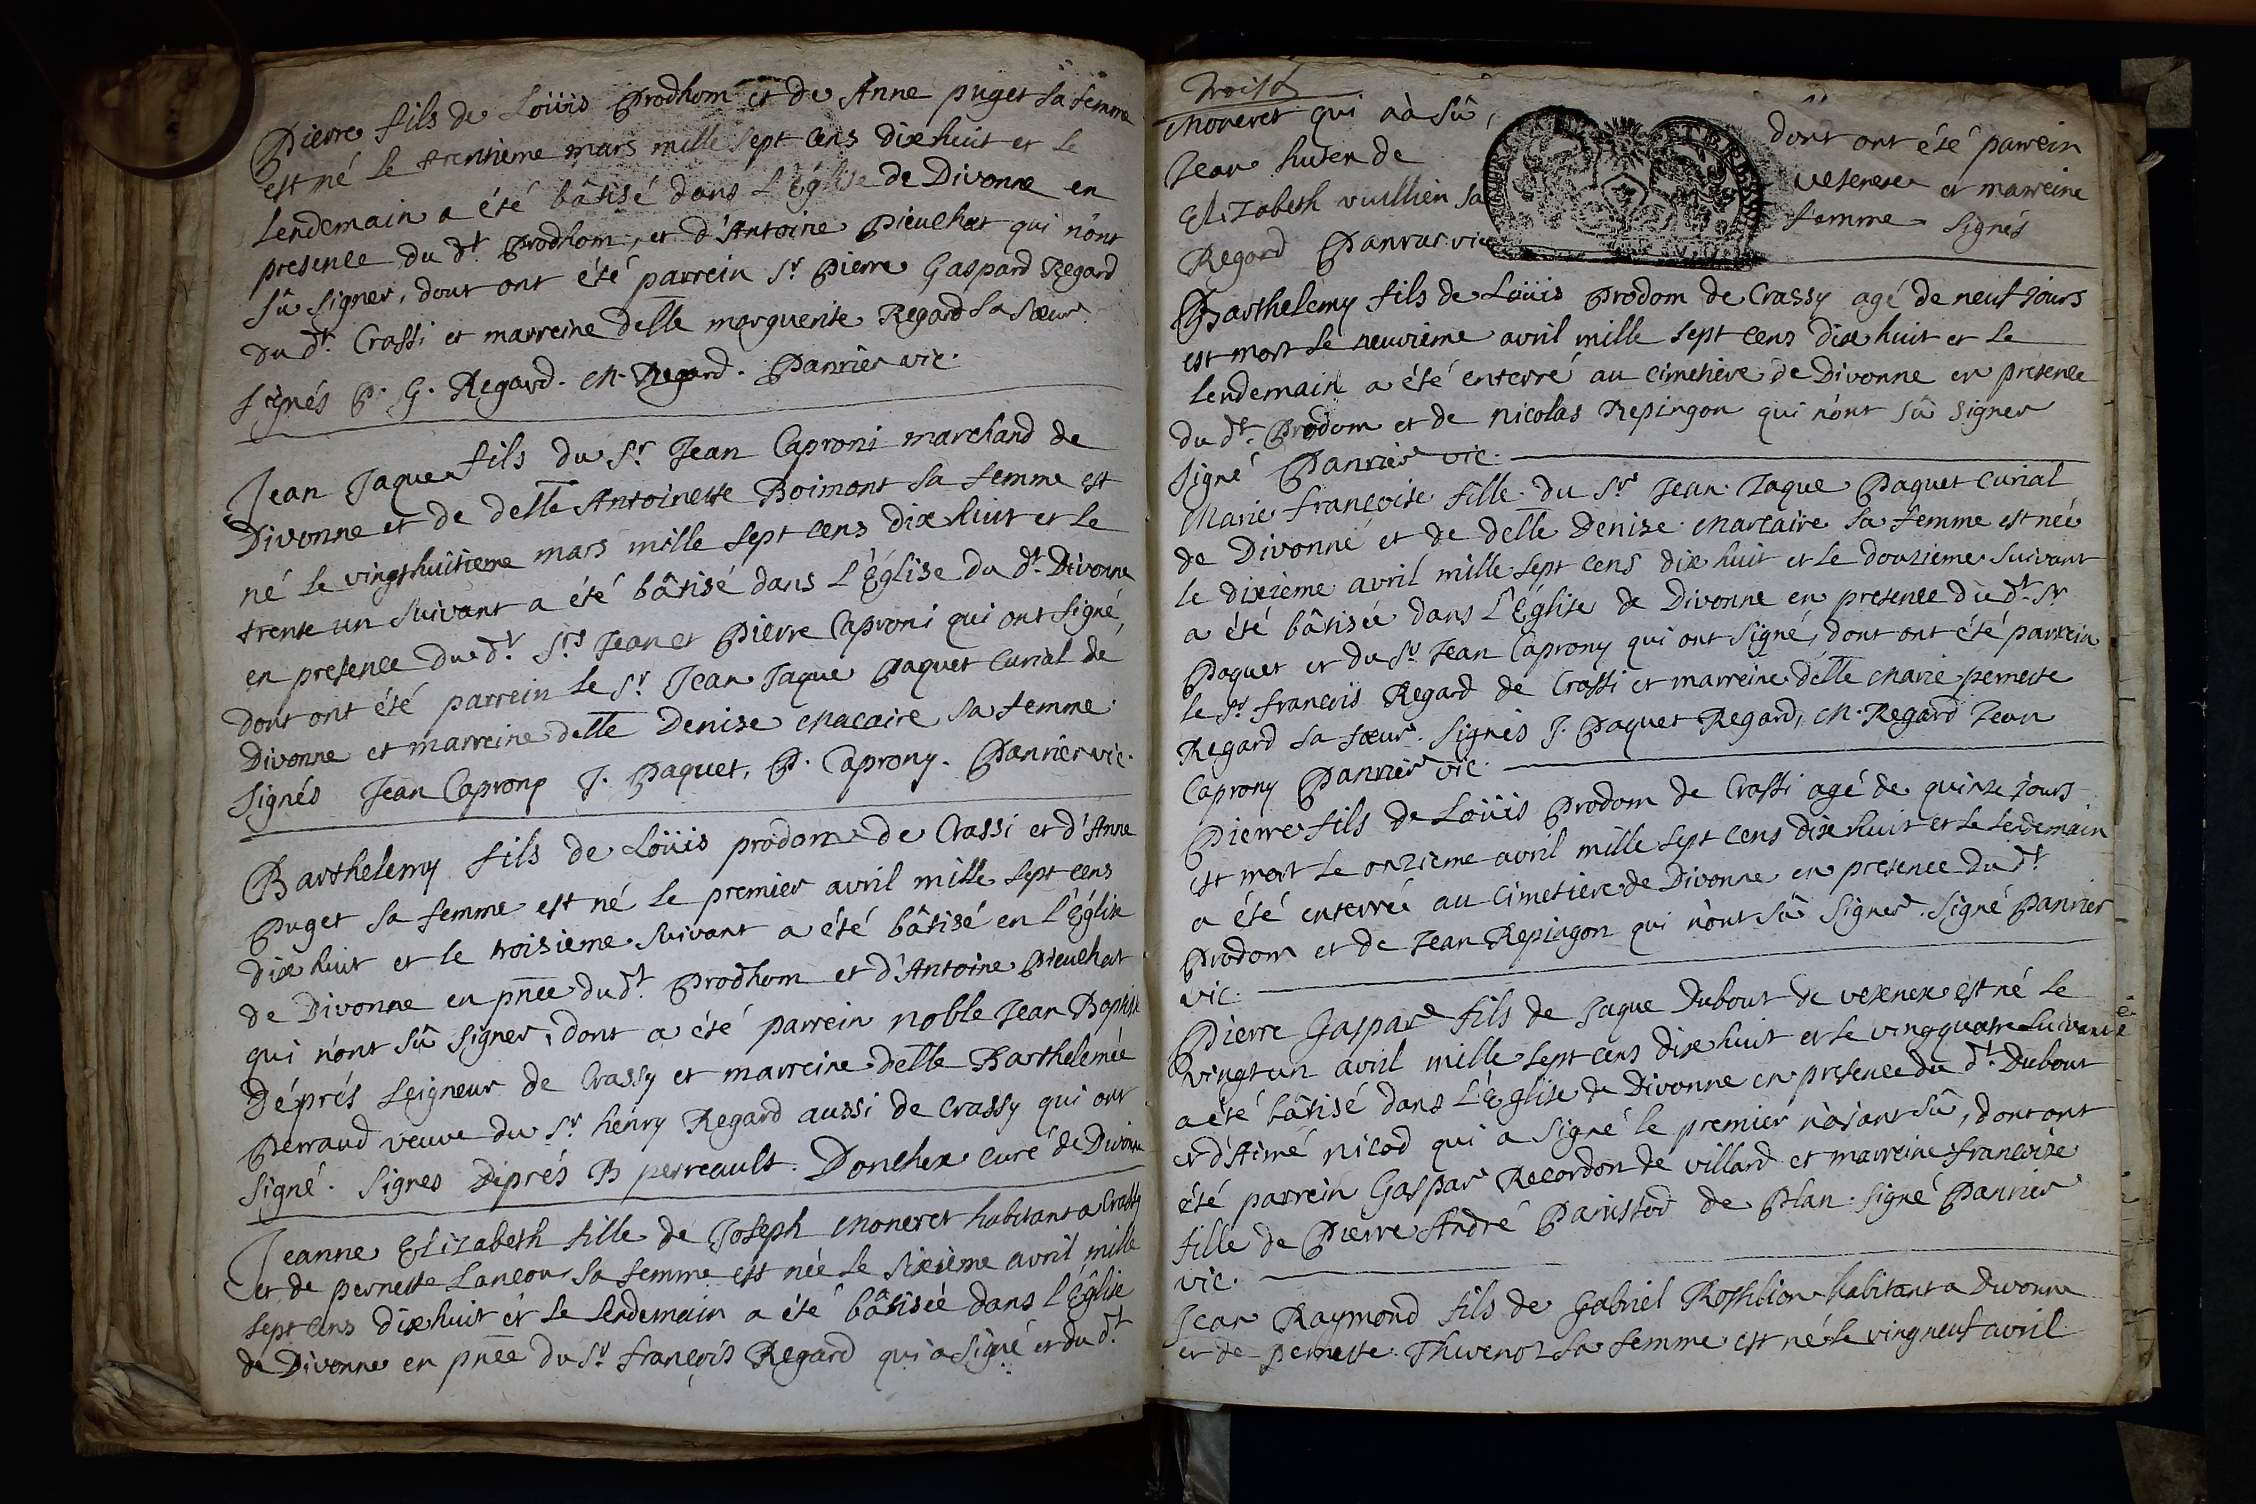 Pierre fils de Loüis Prodhom et de Anne puget sa femme
est né le trentième mars mille sept cens dixhuit et le
lendemain a été bâtisé dans L'Église de Divonne en
presence du dt. Prodhom, et d'Antoine Pieuchat qui n'ont
sû signer, dont ont été parrein Sr. Pierre Gaspard Regard
du dt. Crassi et marreine delle marguerite Regard sa sœur
signés P. G. Regard. M. Regard. Panrier vic.
Jean Jaque fils du Sr. Jean Caproni marchand de
Divonne et de delle Antoinette Boimont sa femme est
né le vingthuitieme mars mille sept cens dix huit et le
trente un suivant a été bâtisé dans L'Église du dt. Divonne
en presence du dt. Srs Jean et Pierre Caproni qui ont signé,
dont ont été parrein le Sr. Jean Jaque Paquet curial de
Divonne et marreine delle Denise Macaire sa femme.
signés Jean Caprony J. Paquet, P. Caprony. Panrier vic.
Barthelemy fils de Loüis prodom de Crassi et d'Anne
Puget sa femme est né le premier avril mille sept cens
dix huit et le troisieme suivant a été bâtisé en L'Église
de Divonne en pnēe du dt. Prodhom et d'Antoine Pieuchat
qui n'ont sû signer, dont a été parrein noble Jean Baptiste
Déprés seigneur de Crassy et marreine delle Barthelemée
Perraud veuve du Sr. henry Regard aussi de Crassy qui ont
signé. signes Déprés B perreault. Donchex curé de Divonne
Jeanne Elizabeth fille de Joseph Moneret habitant a Crassy
et de pernette Lançon sa femme est née le sixième avril mille
sept cens dixhuit et le lendemain a été bâtisée dans l'Église
de Divonne en pnēe du Sr. françois Regard qui a signé et du dt.
Moneret qui n'a sû, dont ont été parrein
Jean husen de et marreine
Elizabeth vuillien sa femme signés
Regard Panrier vic
Barthelemy fils de Loüis Prodom de Crassy agé de neuf jours
est mort le neuvième avril mille sept cens dix huit et le
lendemain a été enterré au cimetière de Divonne en présence
du dt. Prodom et de nicolas Repingon qui n'ont sû signer
signé Panrier vic.
Marie françoise fille du Sr. Jean Jaque Paquet curial
de Divonne et de delle Denise Marcaire sa femme est née
le dixième avril mille sept cens dix huit et le douzieme suivant
a été bâtisée dans L'Église de Divonne en presence du dt. Sr
Paquet et du Sr Jean Caprony qui ont signé, dont ont été parrein
le Sr françois Regard de Crassi et marreine delle Marie pernette
Regard sa sœur. signés J. Paquet Regard, M. Regard Jean
Caprony Panrier vic.
Pierre fils de Loüis Prodom de Crassi agé de quinze jours
est mort le onzieme avril mille sept cens dix huit et le lendemain
a été enterré au cimetiere de Divonne en presence du dt
Prodom et de Jean Repingon qui n'ont sû signer. signé Panrier
vic.
Pierre Gaspar fils de Jaque Dubout de vesenex est né le
vingt un avril mille sept cens dix huit et le vingquatre suivant
a été bâtisé dans L'Église de Divonne en presence du dt. Dubout
et d'Aimé nicod qui a signé le premier n'aiant sû, dont ont
été parrein Gaspar Recordon de villard et marreine françoise
fille de Pierre André Panissod de Plan. signé Panrier
vic.
Jean Raymond fils de Gabriel Rosthlion habitant a Divonne
et de pernette Thuvenoz sa femme est né le vingneuf avril